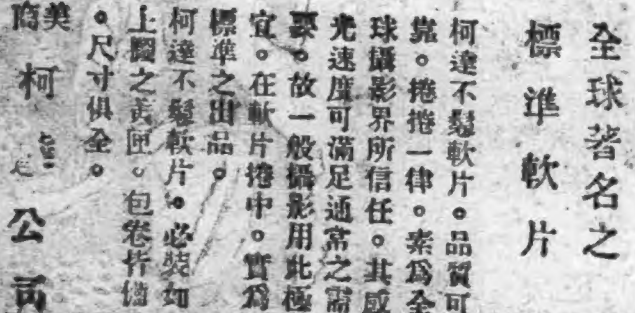 全球著名之
標準軟片
柯達不鬆軟片。品質可
靠。捲捲一律。素爲全
球攝影界所信任。其感
光速度可滿足通常之需
要。故一般攝影用此極
宜。在軟片捲中。實爲
標準之出品。
柯達不鬆軟片。必裝如
上圖之黃匣。包裝皆備
。尺寸俱全。
美商
柯達公司